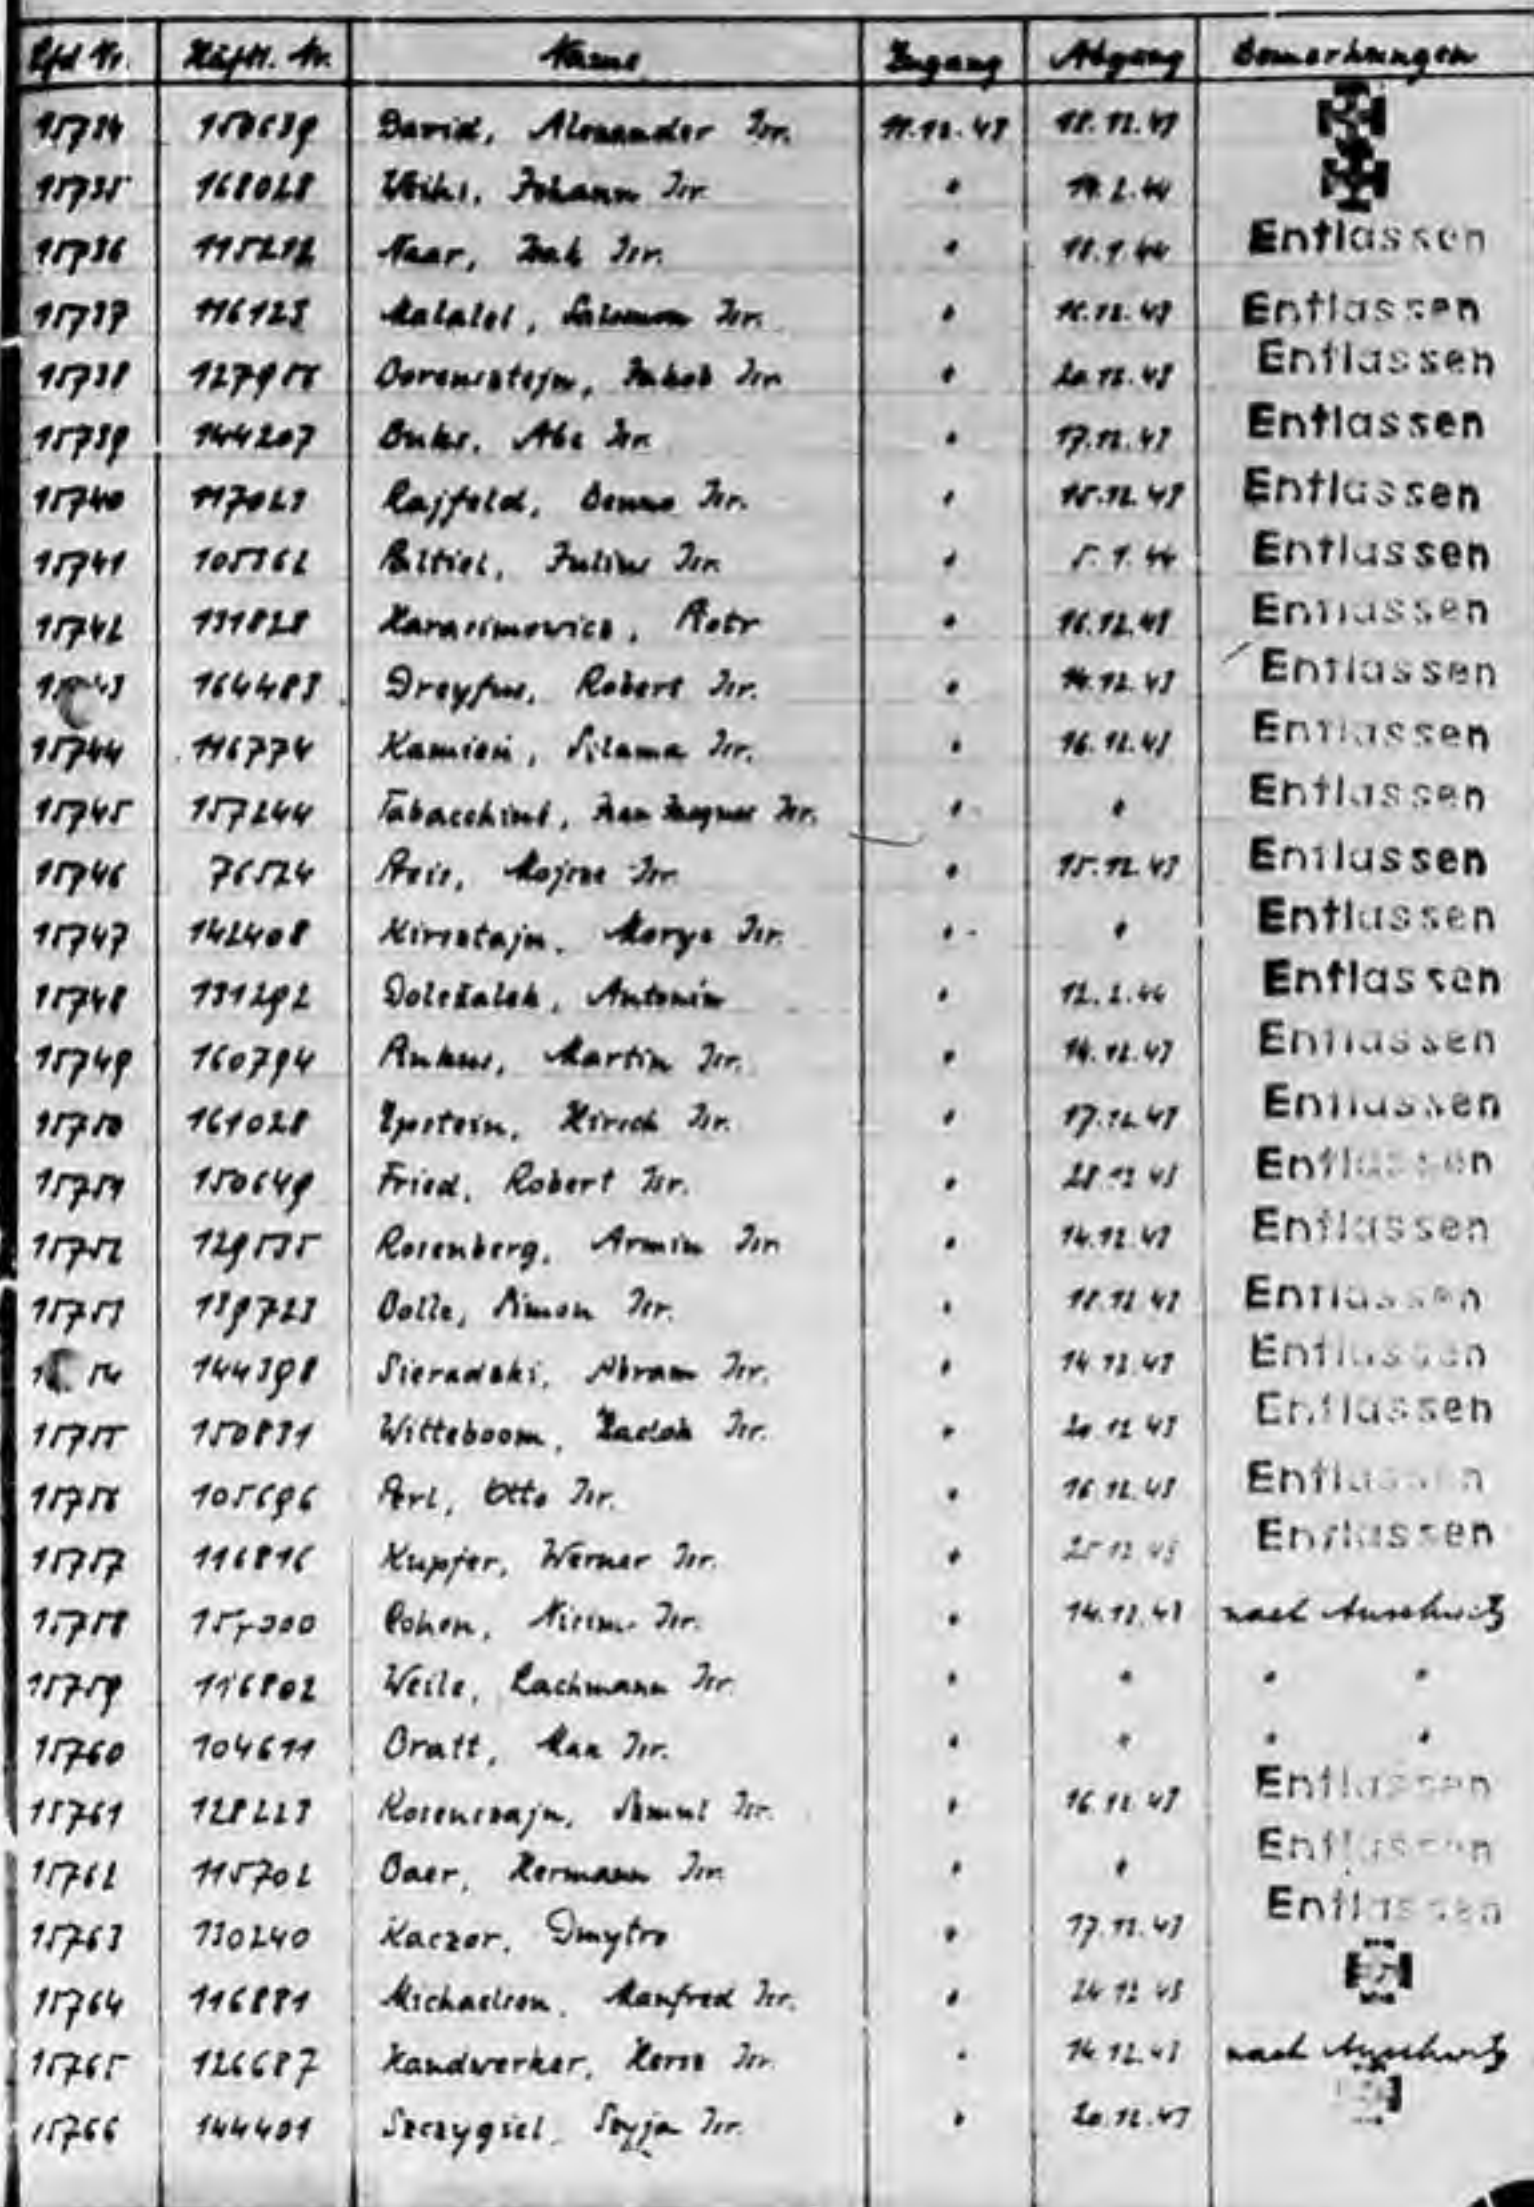 Lfd Nr. Häftl. Nr. Name Zugang Abgang Bemerkungen
15734 150639 David, Alexander Isr. 11.12.43 18.12.43
15735 168028 Johann Isr. " 14.2.44
15736 115212 Naar, Isak Isr. " 18.1.44 Entlassen
15737 116123 Malalel, Salomon Isr. " 16.12.43 Entlassen
15738 Jakob Isr. " 20.12.43 Entlassen
15739 144207 Buks, Abe Isr. " 17.12.43 Entlassen
15740 117023 Rajfeld, Benno Isr. " 15.12.43 Entlassen
15741 105362 Paltiel, Julius Isr. " 5.1.44 Entlassen
15742 131828 Harasimowicz, Piotr " 16.12.43 Entlassen
164483 Dreyfus, Robert Isr. " 14.12.43 Entlassen
15744 116774 Kamień, Szlama Isr. " 16.12.43 Entlassen
15745 157244 Isr. " " Entlassen
15746 76524 Mojsze Isr. " 15.12.43 Entlassen
15747 142408 Kirsztajn, Isr. " " Entlassen
15748 131292 Doležalek, Antonin " 12.2.44 Entlassen
15749 160794 Martin Isr. " 14.12.43 Entlassen
15750 161028 Epstein, Hirsch Isr. " 17.12.43 Entlassen
15751 150649 Fried, Robert Isr. " 28.12.43 Entlassen
15752 129535 Rosenberg, Armin Isr. " 14.12.43 Entlassen
15753 139723 Bolle, Simon Isr. " 18.12.43 Entlassen
144398 Sieradzki, Abram Isr. " 14.12.43 Entlassen
15755 150831 Witteboom, Zadok Isr. " 20.12.43 Entlassen
15756 105696 Perl, Otto Isr. " 16.12.43 Entlassen
15757 116816 Kupfer, Werner Isr. " 25.12.43 Entlassen
15758 Cohen, Nissim Isr. " 14.12.43 nach Auschwitz
15759 116802 Weile, Lachmann Isr. " " " "
15760 104611 Bratt, Max Isr. " " " "
15761 128223 Rosenszajn, Szmul Isr. " 16.12.43 Entlassen
15762 115702 Baer, Hermann Isr. " " Entlassen
15763 130240 Kaczor, Dmytro " 17.12.43 Entlassen
15764 116881 Michaelson, Manfred Isr. " 24.12.43
15765 126687 Handwerker, Hersz Isr. " 14.12.43 nach Auschwitz
15766 144401 Szczygiel, Isr. " 20.12.43